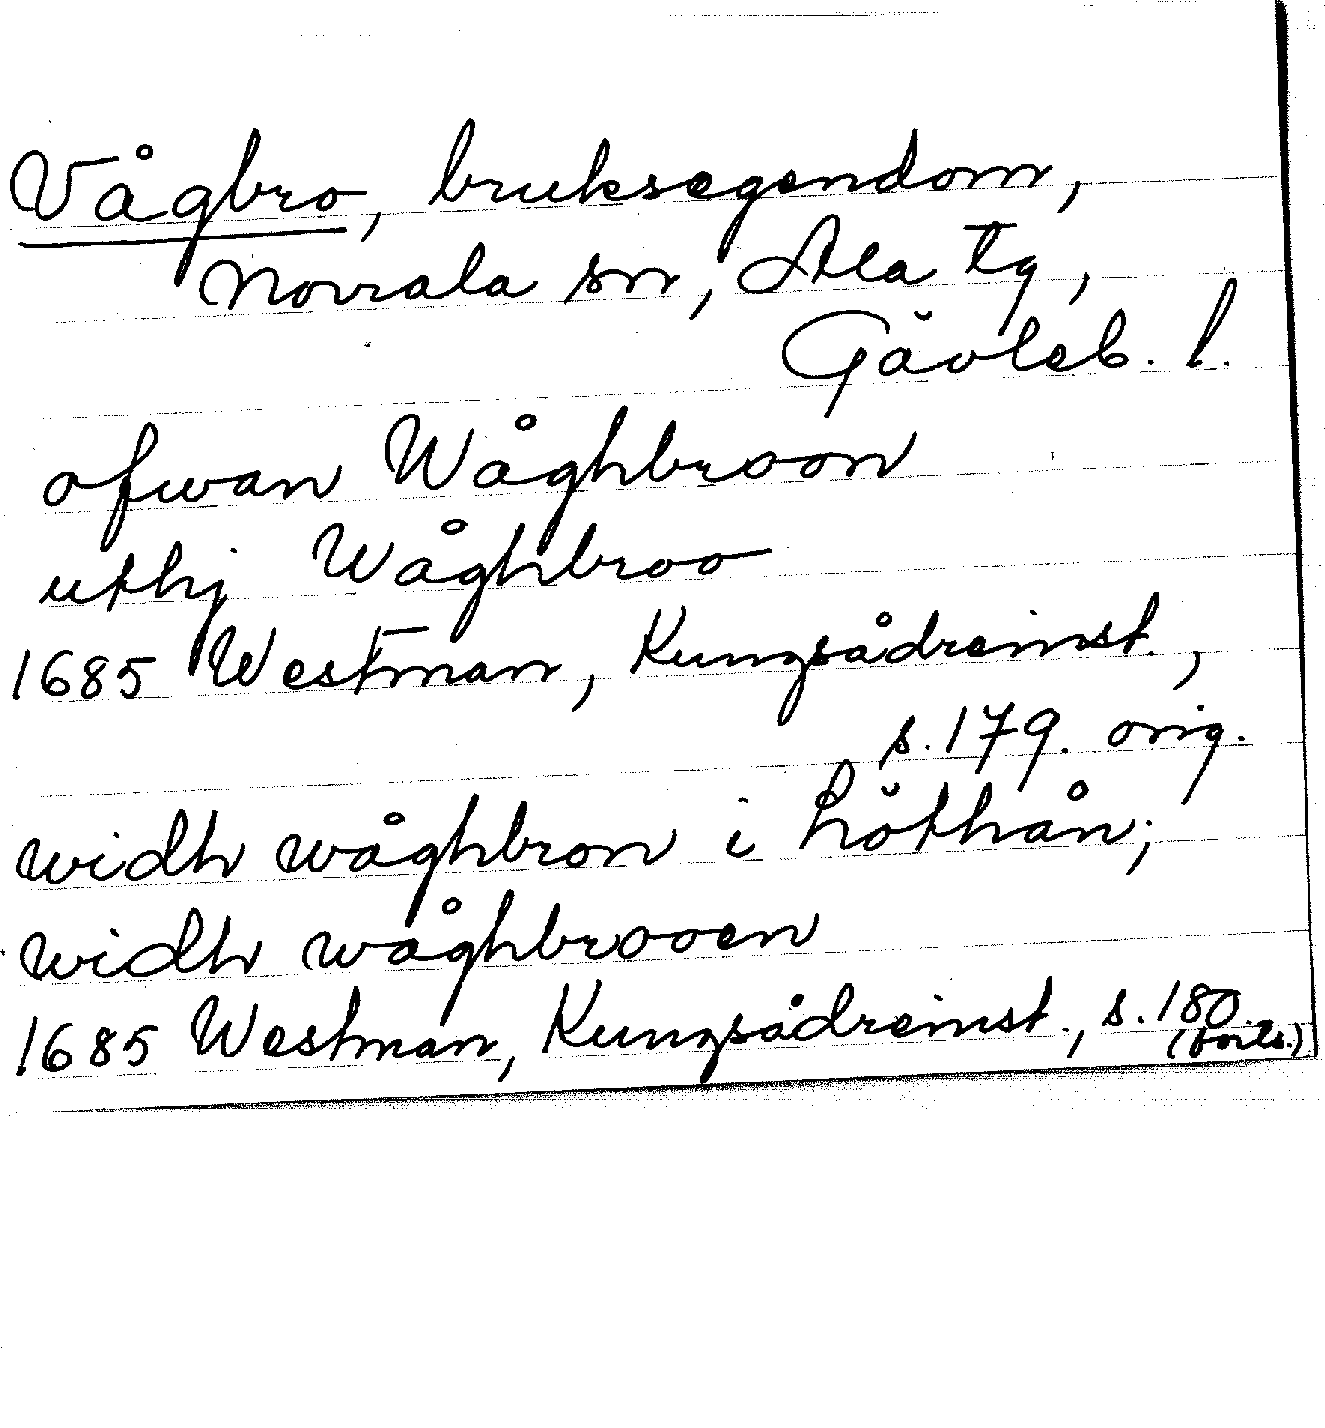 Vågbro, bruksegendom,
Norrala sn, Ala tg,
Gävleb. l.
ofwan Wåghbroon
uthj Wåghbroo
1685 Westman, Kungsådreinst.,
s. 179. orig.
widh wåghbron i höthån;
widh wåghbrooen
1685 Westman, Kungsådreinst., s. 180.
(forts.)